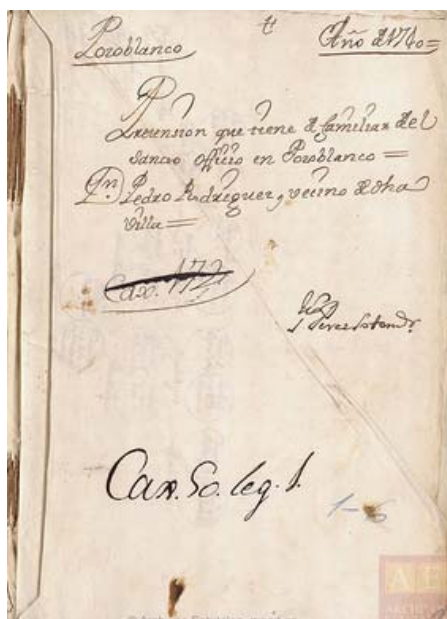 Pozoblanco
Año de 1740=
Pretension que tiene de familiar del
Sancto officio en Pozoblanco=
Dn. Pedro Rodriguez, vecino de dha
Villa=
Cax. 172
Perez
Cax. 50. leg. 1.
1-6